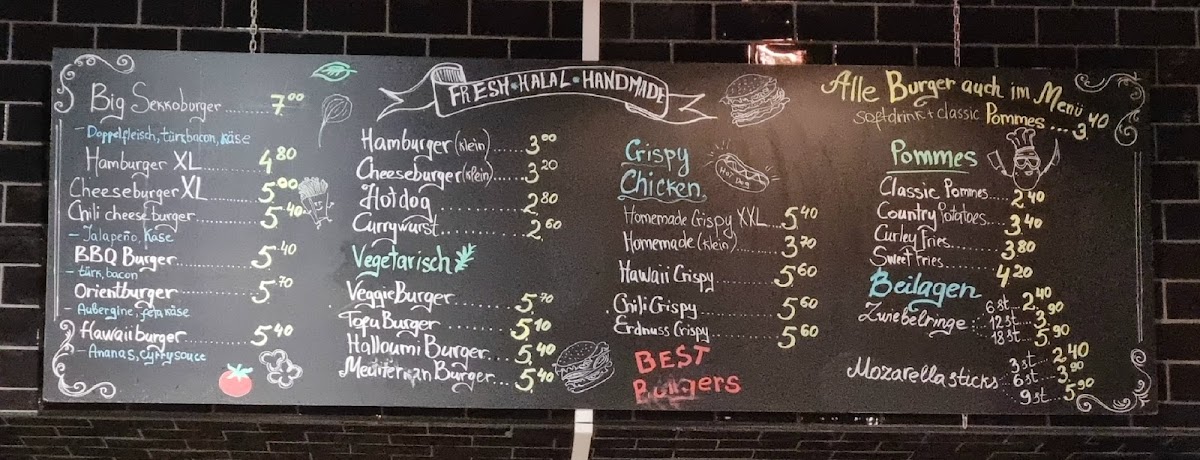 FRESH • HALAL • HANDMADE
Big Sekkoburger ........ 7.00
- Doppelfleisch, türk.bacon, käse
Hamburger XL ........ 4.80
Cheeseburger XL ........ 5.00
Chili cheese burger ........ 5.40
- Jalapeño, Käse
BBQ Burger ........ 5.40
- türk, bacon
Orientburger ........ 5.70
- Aubergine, feta käse
Hawaiiburger ........ 5.40
- Ananas, currysouce
Hamburger (klein) ..... 3.00
Cheeseburger (klein) ..... 3.20
Hotdog ........ 2.80
Currywurst ........ 2.60
Vegetarisch
Veggie Burger ........ 5.70
Tofu Burger ........ 5.10
Halloumi Burger ........ 5.40
Mediterran Burger ... 5.40
HOT DOG
Crispy
Chicken
Homemade Crispy XXL ... 5.40
Homemade (klein) ........ 3.70
Hawaii Crispy ........ 5.60
Chili Crispy ........ 5.60
Erdnuss Crispy ........ 5.60
BEST
Burgers
Alle Burger auch im Menü
softdrink + classic Pommes ... 3.40
Pommes
Classic Pommes .... 2.40
Country Potatoes ..... 3.40
Curley Fries ........ 3.80
Sweet Fries ........ 4.20
Beilagen
Zwiebelringe : 6 st... 2.40
12 st... 3.90
18 st... 5.90
Mozarella sticks 3 st... 2.40
6 st... 3.90
9 st... 5.90